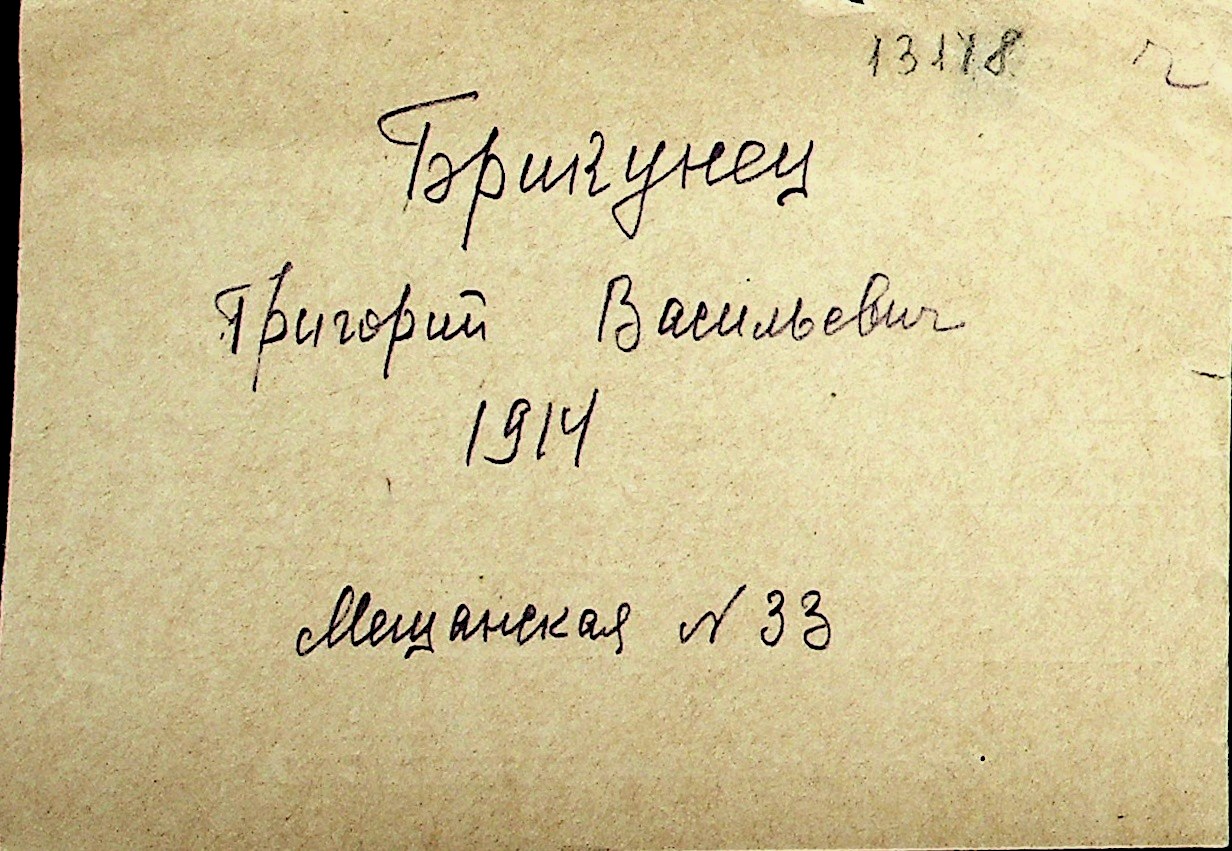 13178
Брикунец
Григорий Васильевич
1914
Мещанская N 33